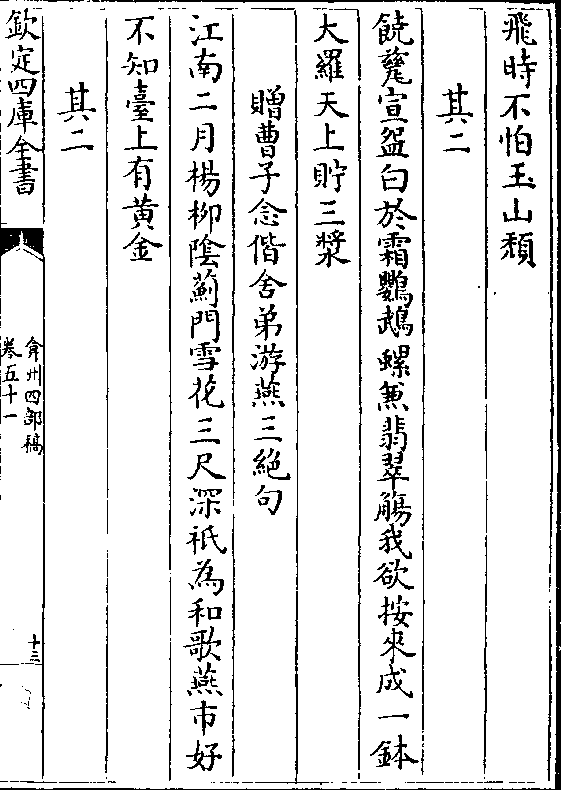 飛時不怕玉山頽
其二
饒甆宣盌白於霜鸚鵡螺兼翡翠觴我欲按來成一鉢
大羅天上貯三漿
贈曹子念偕舍弟游燕三絕句
江南二月楊柳陰薊門雪花三尺深祇為和歌燕市好
不知臺上有黃金
其二
欽定四庫全書
弇州四部稿
卷五十一
十三